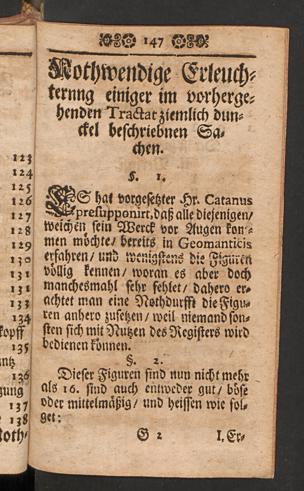 147
Nothwendige Erleuch-
ternng einiger im vorherge-
henden Tractat ziemlich dun-
ckel beschriebnen Sa-
chen.
§. 1.
ES hat vorgesetzter Hr. Catanus
presupponirt, daß alle diejenigen/
welchen sein Werck vor Augen kom-
men möchte/ bereits in Geomanticis
erfahren/ und wenigstens die Figuren
völlig kennen/ woran es aber doch
manchesmahl sehr fehlet/ dahero er-
achtet man eine Nothdurfft die Figu-
ren anhero zusetzen/ weil niemand son-
sten sich mit Nutzen des Registers wird
bedienen können.
§. 2.
Dieser Figuren sind nun nicht mehr
als 16. sind auch entweder gut/ böse
oder mittelmäßig/ und heissen wie fol-
get:
G 2 I. Er-
123
124
125
126
127
128
129
130
131
131
133
134
kopff
135
136
gung
137
138